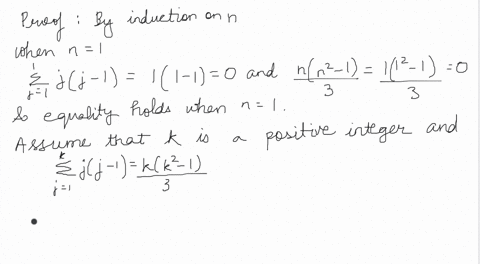 Proof : By induction on n
when n = 1
\sum_{j=1}^{1} j(j-1) = 1(1-1) = 0 and \frac{n(n^2-1)}{3} = \frac{1(1^2-1)}{3} = 0
So equality holds when n = 1.
Assume that k is a positive integer and
\sum_{j=1}^{k} j(j-1) = \frac{k(k^2-1)}{3}